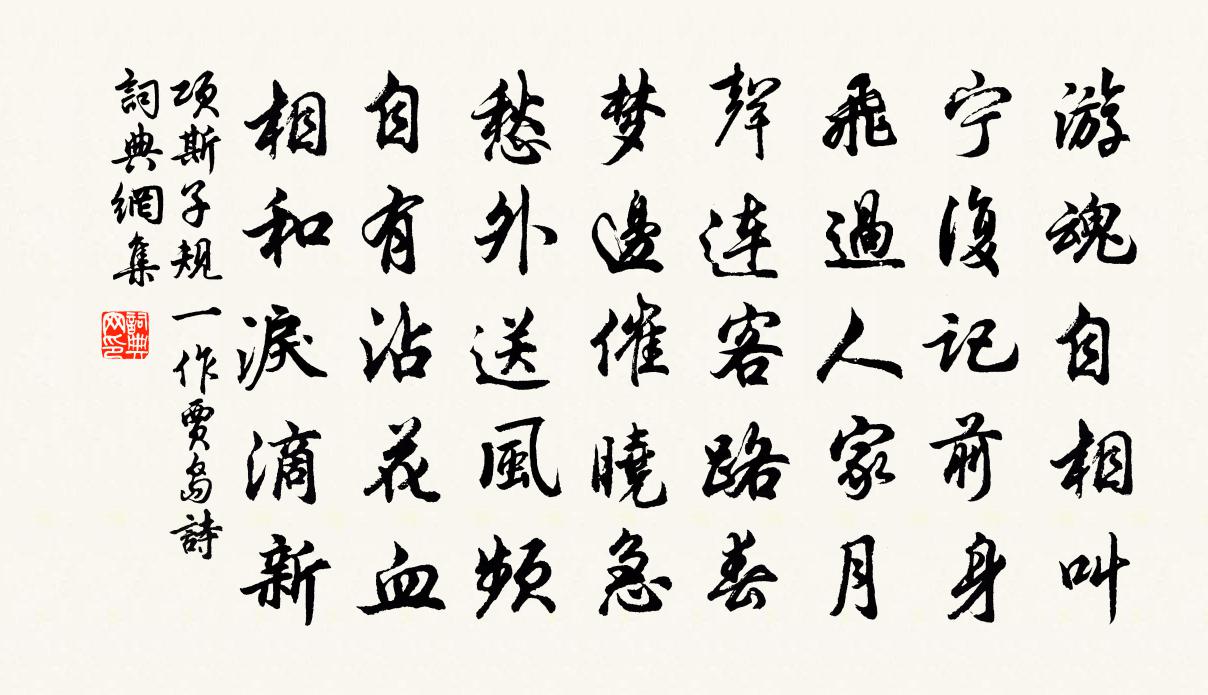 游魂自相叫
宁復记前身
飛過人家月
聲连客路春
梦邊催曉急
愁外送風频
自有沾花血
相和淚滴新
项斯子规 一作贾岛詩
詞典網集
詞典网印